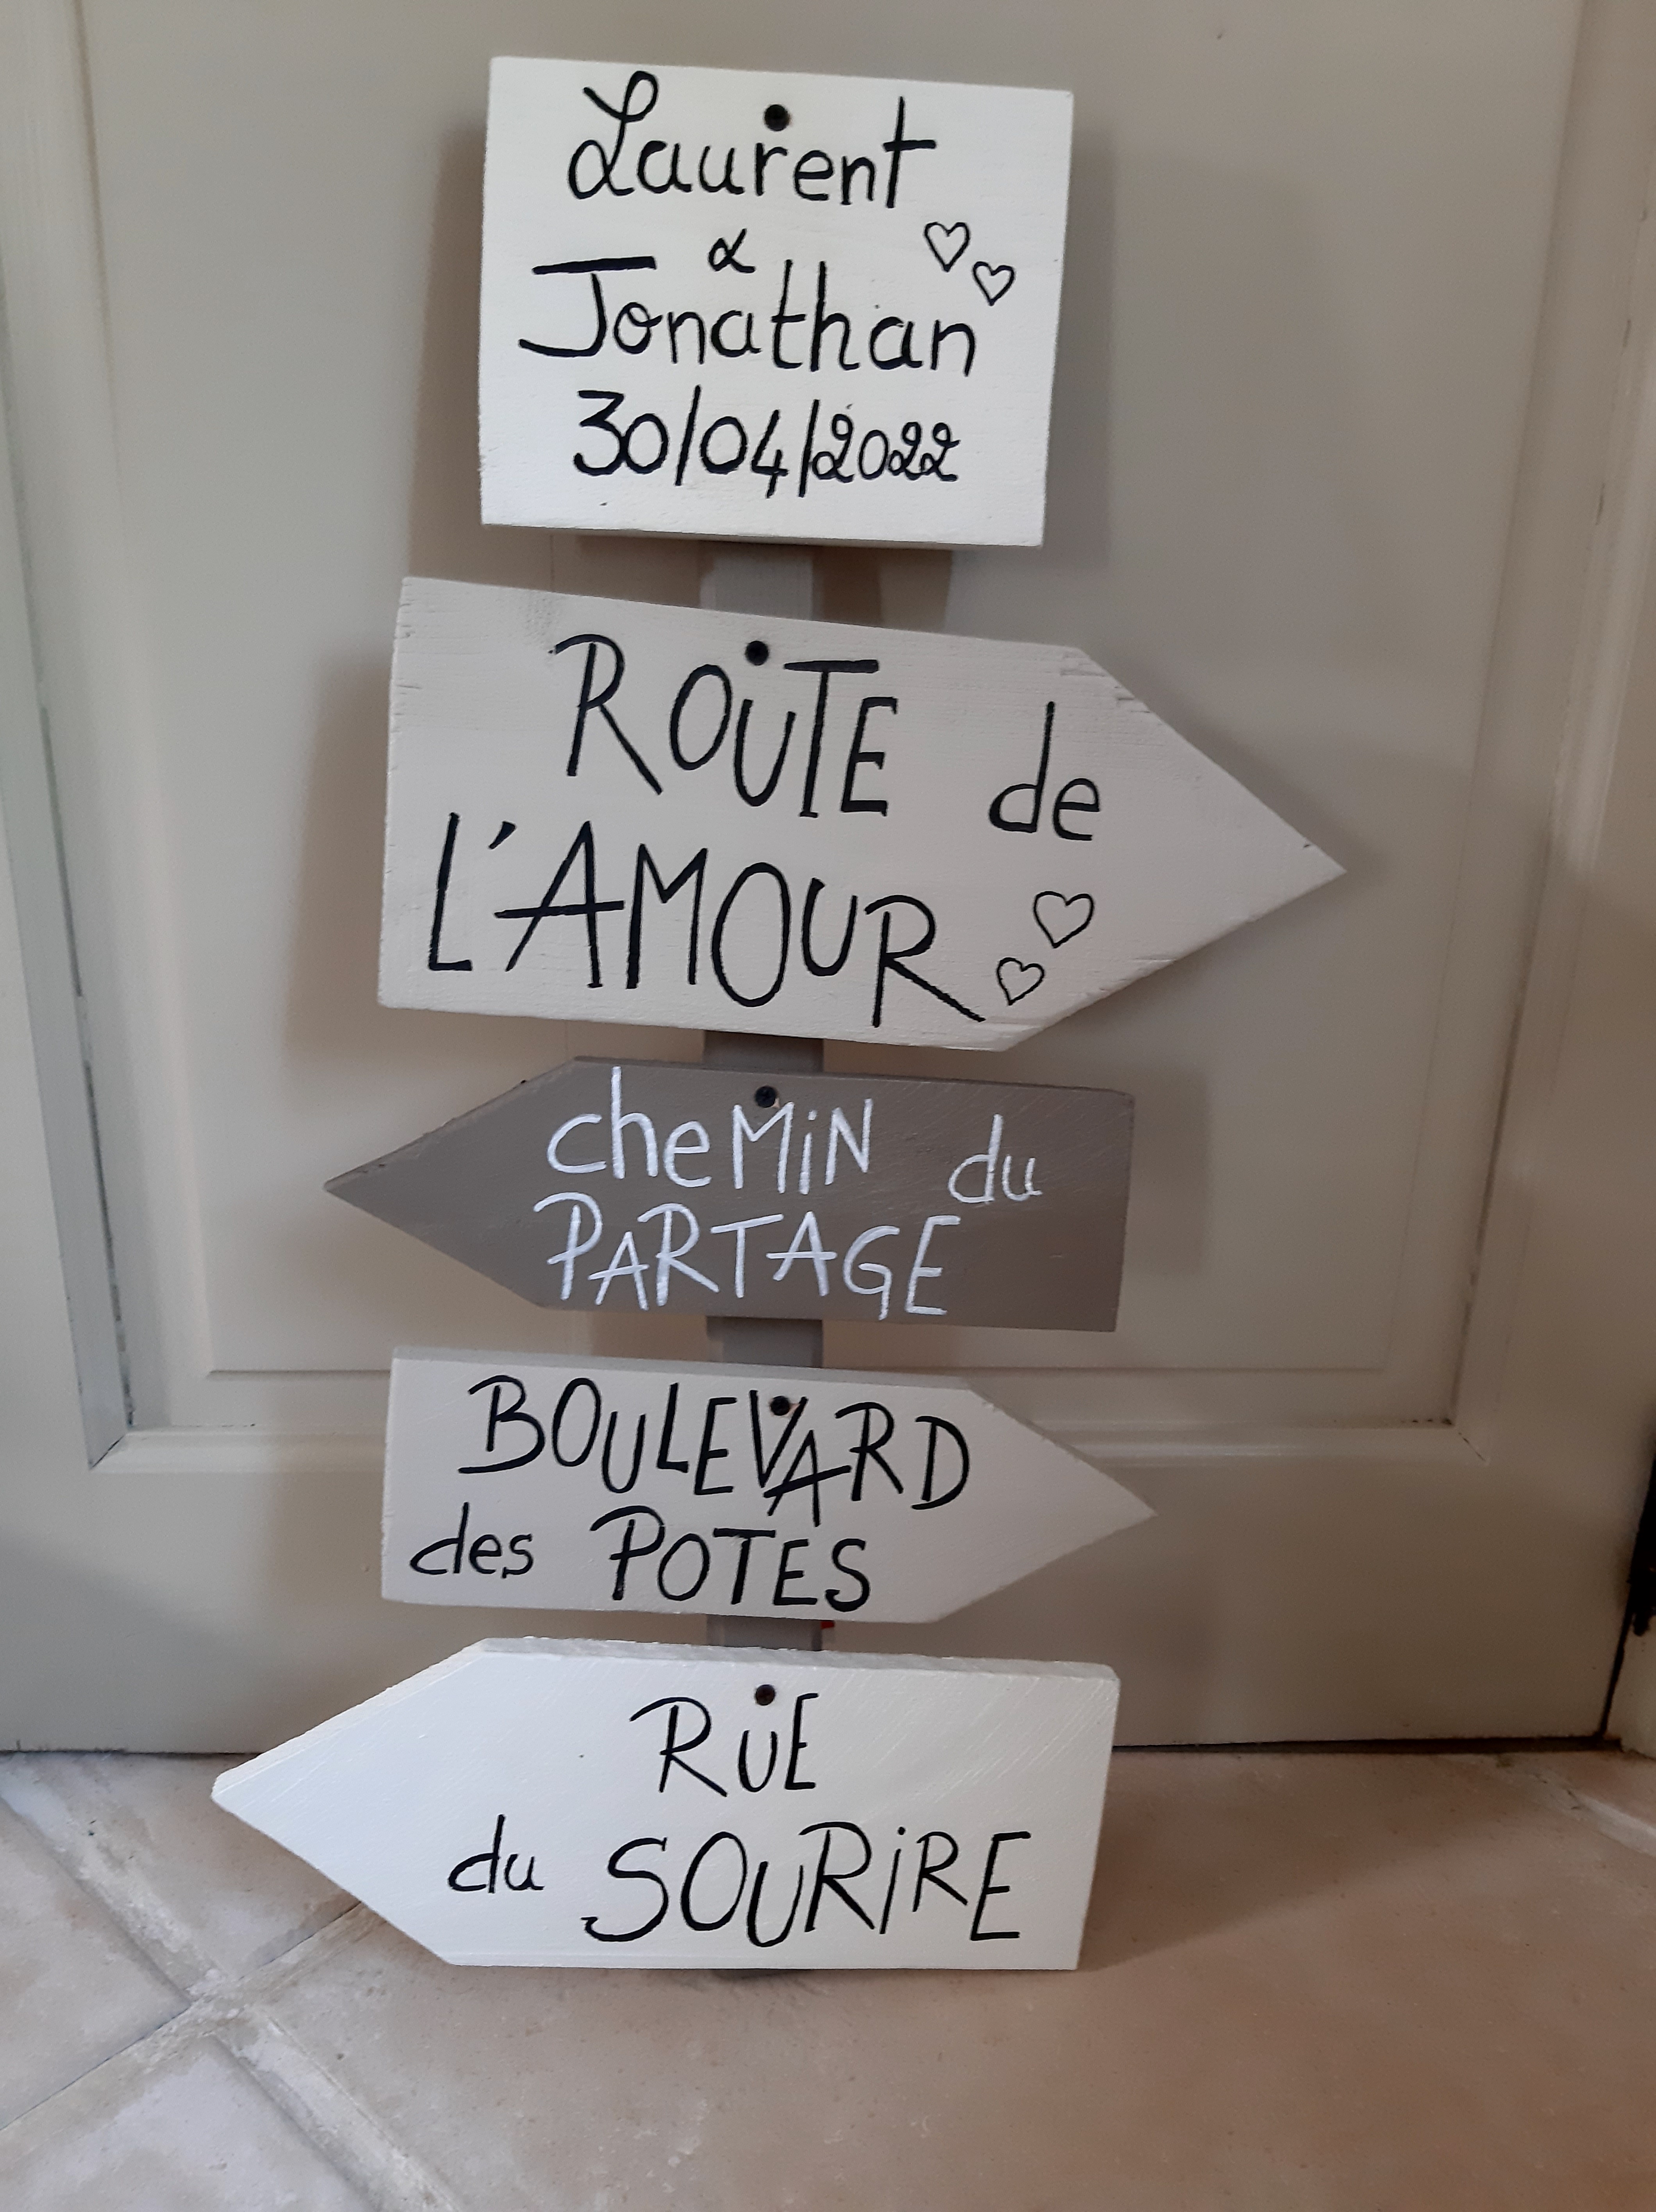 Laurent
&
Jonathan
30/04/2022
ROUTE de
L'AMOUR
cheMiN du
PARTAGE
BOULEVARD
des POTES
RUE
du SOURiRE